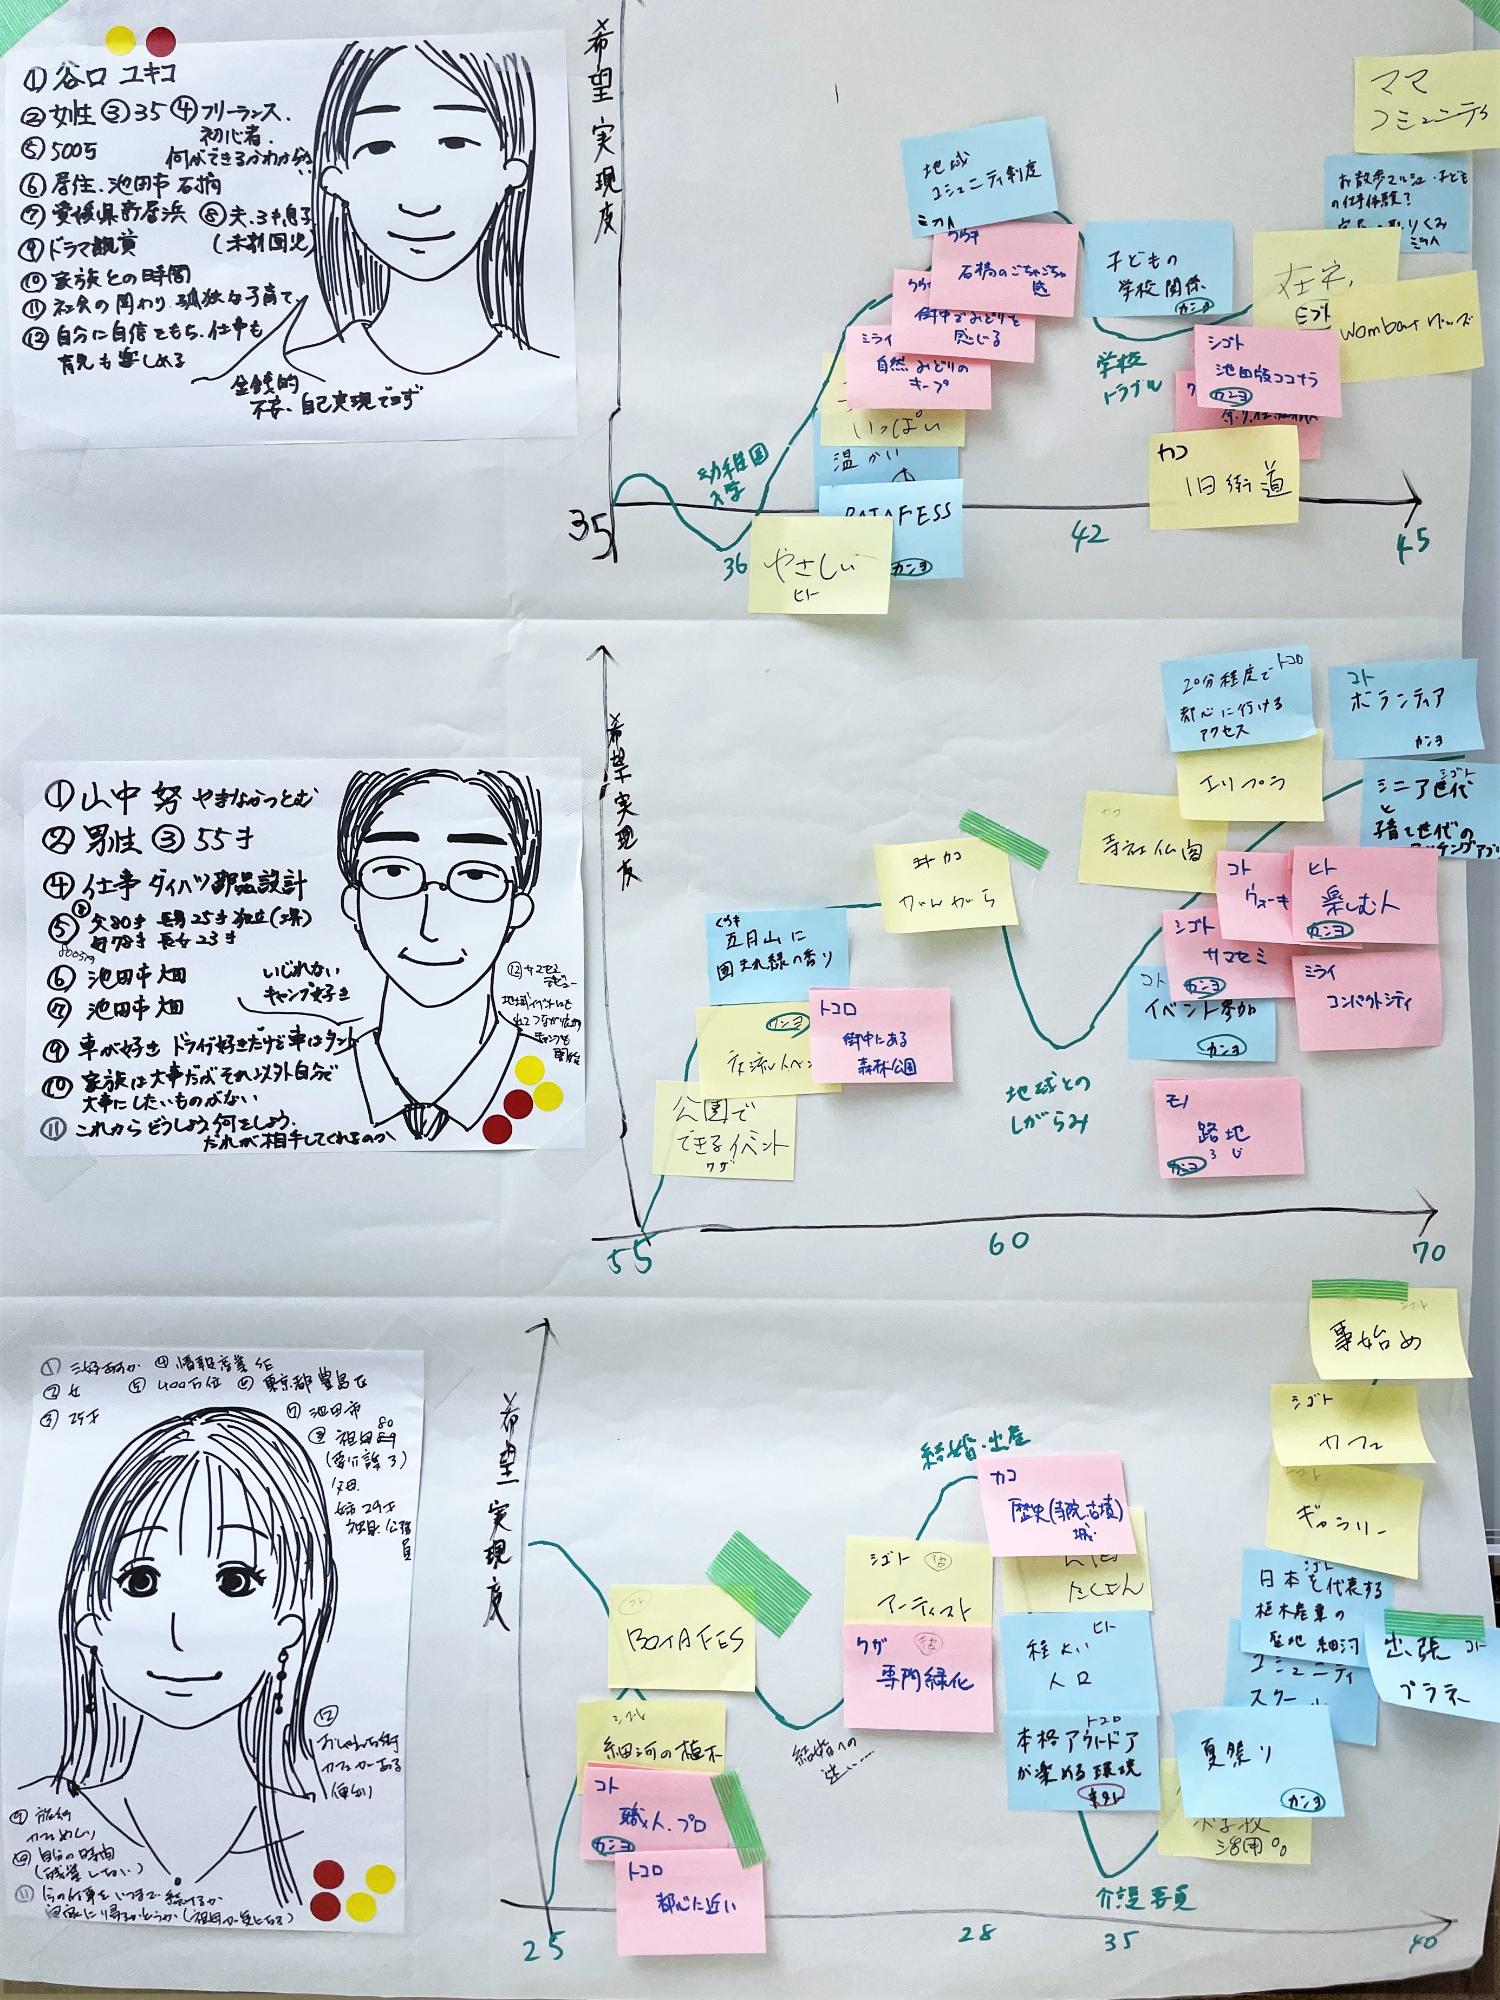 ① 谷口 ユキコ
② 女性 ③ 35 ④ フリーランス.
初心者.
⑤ 500万
何ができるかわからない
⑥ 居住. 池田市 石橋
⑦ 愛媛県新居浜 ⑧ 夫. 3才息子
(未就園児)
⑨ ドラマ観賞
⑩ 家族との時間
⑪ 社会の関わり 孤独な子育て
⑫ 自分に自信をもち. 仕事も
育児も楽しめる
金銭的
不安. 自己実現できず
希望実現度
35
幼稚園
入学
36
42
45
学校
トラブル
地域
コミュニティ制度
ミライ
クウキ
石橋のごちゃごちゃ
感
街中でみどりを
感じる
ミライ
自然みどりの
キープ
いっぱい
温かい
BOTAFESS
カンヨ
やさしい
ヒト
子どもの
学校関係
カンヨ
在宅,
シゴト
wombatグッズ
シゴト
池田版ココナラ
カンヨ
カコ
旧街道
ママ
コミュニティ
お散歩マルシェ・子ども
の仕事体験?
ミライ
① 山中 努 やまなかつとむ
② 男性 ③ 55才
④ 仕事 ダイハツ部品設計
⑤ ⑧ 父80才 長男25才 独立(堺)
母78才 長女23才
800万
⑥ 池田市畑
⑦ 池田市畑
いじれない
キャンプ好き
⑨ 車が好き ドライブ好きだけど車はタント
⑩ 家族は大事だがそれ以外自分で
大事にしたいものがない
⑪ これからどうしよう. 何をしよう.
だれが相手してくれるのか
⑫ サマセミ
デビュー
希望実現度
55
60
70
地域との
しがらみ
公園で
できるイベント
ワザ
交流イベント
カンヨ
クウキ
五月山に
囲まれ緑の香り
トコロ
街中にある
森林公園
がんがら
寺社仏閣
20分程度で トコロ
都心に行ける
アクセス
エリプラ
コト
ボランティア
カンヨ
シゴト
シニア世代
と
子育て世代の
マッチングアプリ
コト
ウォーキ
ヒト
楽しむ人
カンヨ
シゴト
サマセミ
カンヨ
コト
イベント参加
カンヨ
ミライ
コンパクトシティ
モノ
路地
ろじ
カンヨ
① 三好あすか ④ 情報産業 SE
② 女 ⑤ 400万位 ⑥ 東京都 豊島区
③ 25才 ⑦ 池田市
⑧ 祖母 80
(要介護3)
父母
姉 29才
独身 公務員
⑫
おしゃれな街
カフェがある
便利
⑨ 旅行
カフェめぐり
⑩ 自分の時間
(残業しない)
⑪ 今の仕事をいつまで続けるか
実家に帰るかどうか (祖母が気になる)
希望実現度
25
28
35
40
結婚・出産
結婚への
迷い……
介護要員
BOTAFES
コト
細河の植木
コト
職人. プロ
カンヨ
トコロ
都心に近い
シゴト
アーティスト
ワザ
専門緑化
カコ
歴史(寺院、古墳)
城
たくさん
ヒト
程よい
人口
トコロ
本格アウトドア
が楽める環境
学校
活用
夏祭り
カンヨ
シゴト
日本を代表する
植木産業の
産地 細河
コミュニティ
スクール
出張 コト
プラネ
ギャラリー
シゴト
カフェ
シゴト
事始め